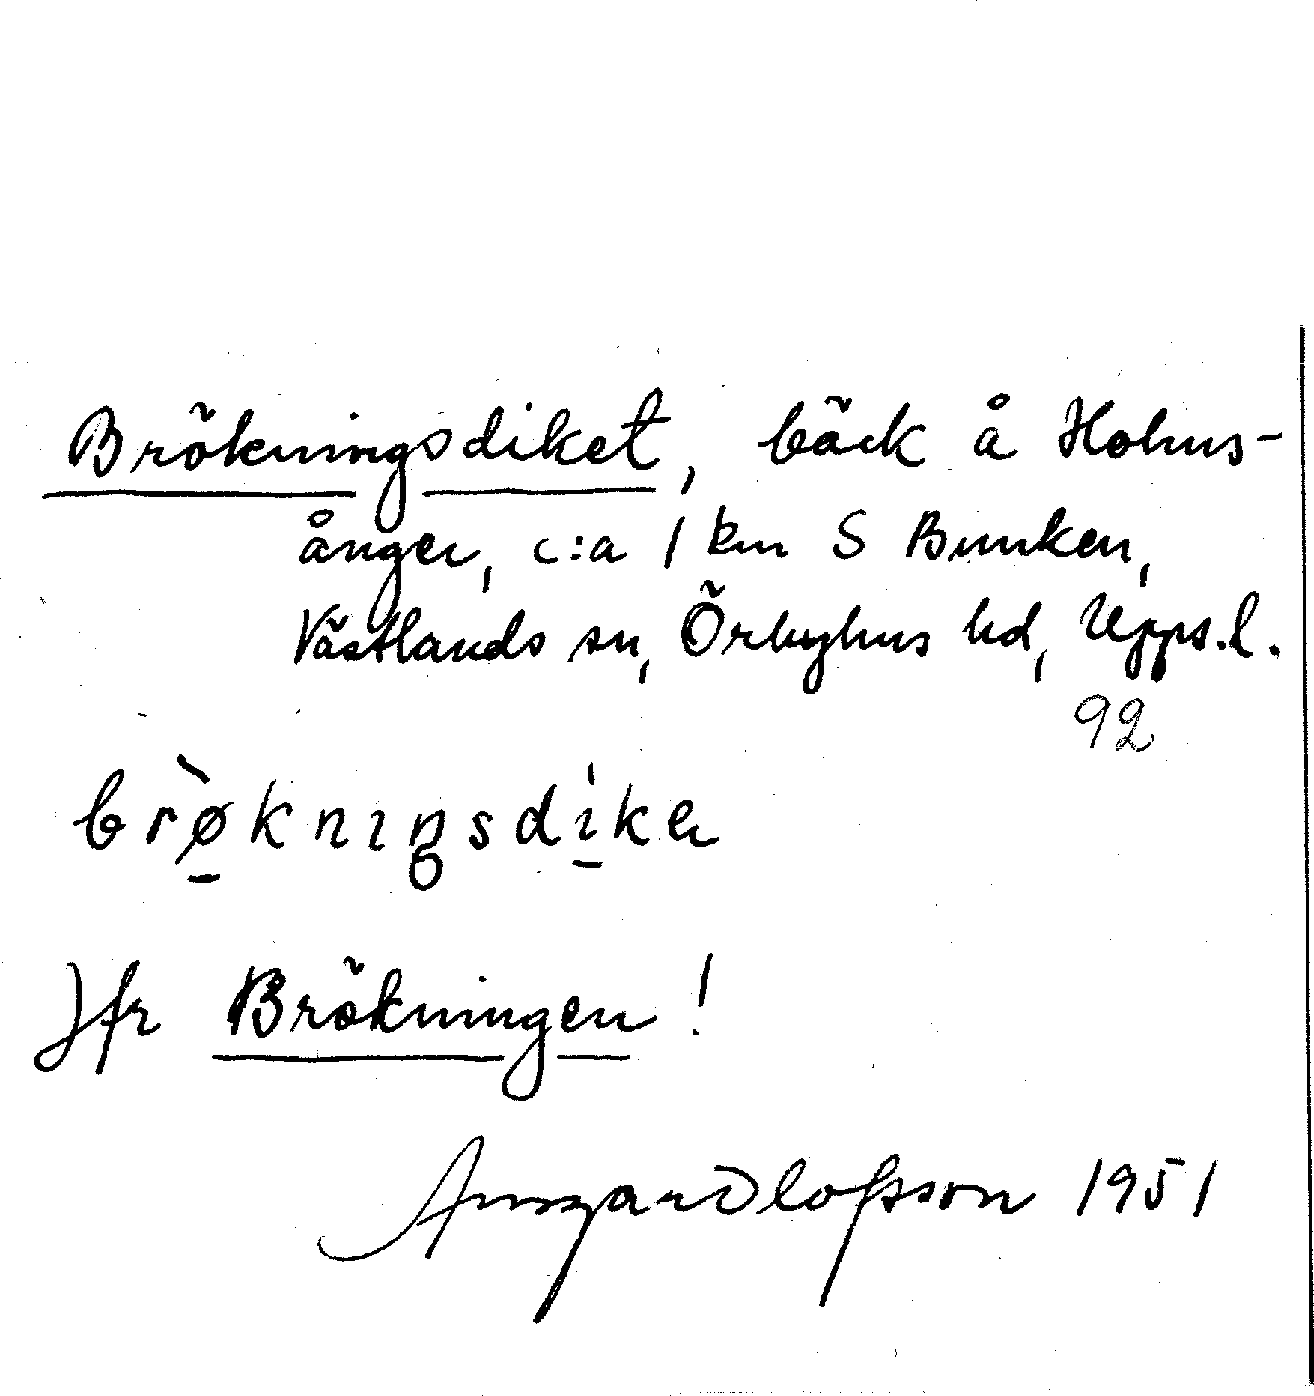 Brökningsdiket, bäck å Hohus-
ånger, c:a 1 km S Bunken,
Västlands sn, Örbyhus hd, Upps.l.
92
brø̀kniŋsdi̍ker
Jfr Brökningen!
Olofsson 1951